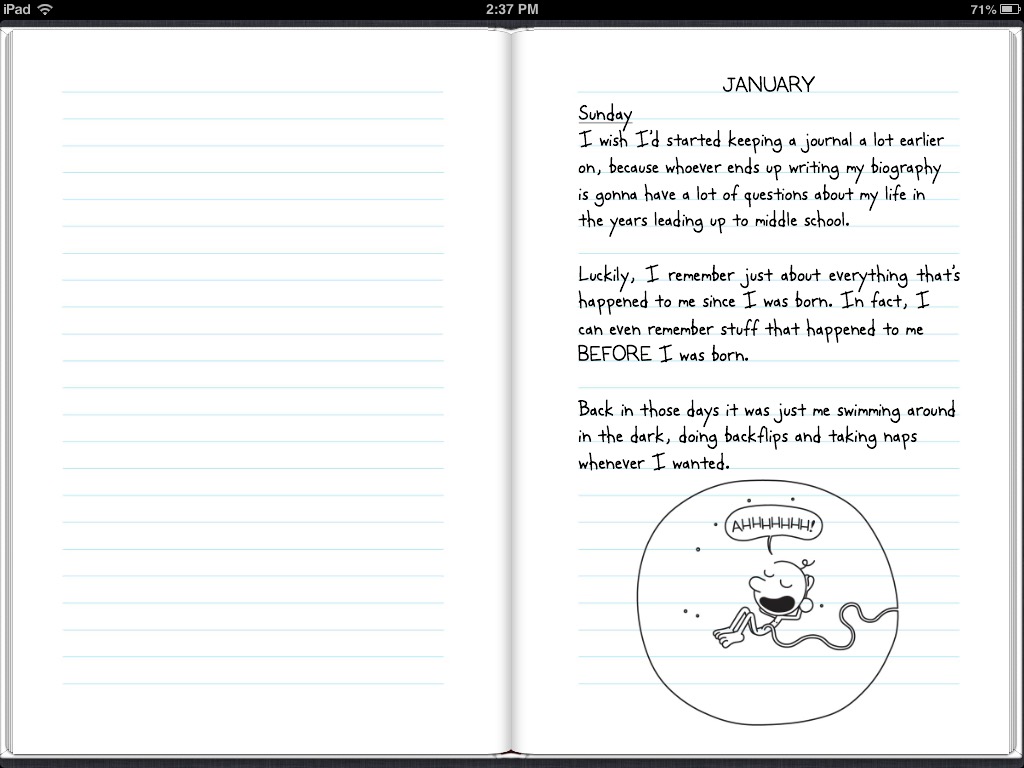 iPad 2:37 PM 71%
JANUARY
Sunday
I wish I'd started keeping a journal a lot earlier
on, because whoever ends up writing my biography
is gonna have a lot of questions about my life in
the years leading up to middle school.
Luckily, I remember just about everything that's
happened to me since I was born. In fact, I
can even remember stuff that happened to me
BEFORE I was born.
Back in those days it was just me swimming around
in the dark, doing backflips and taking naps
whenever I wanted.
AHHHHHHH!